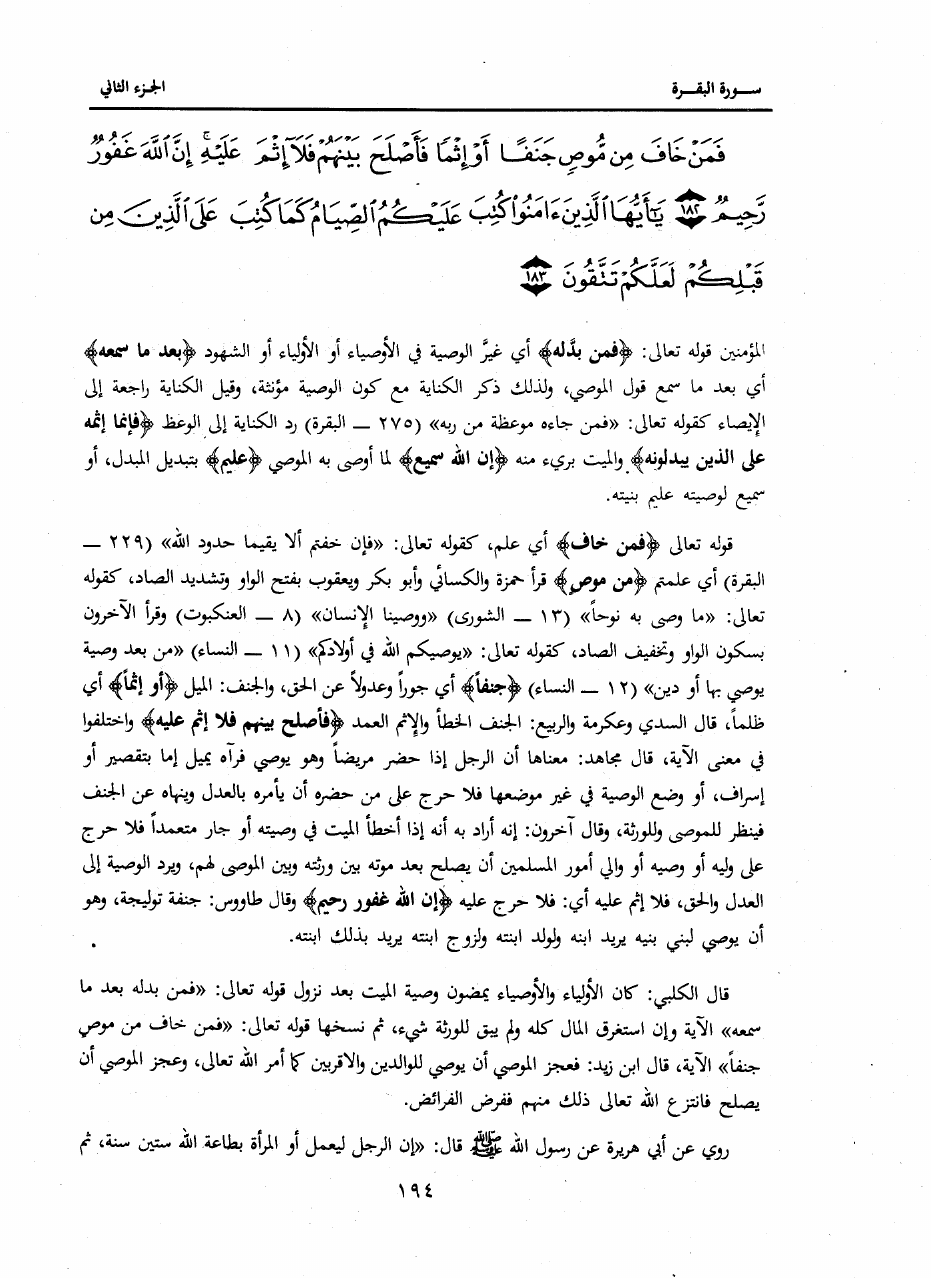 سـورة البقـرة
الجزء الثاني
فَمَنْ خَافَ مِن مُّوصٍ جَنَفًا أَوْ إِثْمًا فَأَصْلَحَ بَيْنَهُمْ فَلَآ إِثْمَ عَلَيْهِ ۚ إِنَّ ٱللَّهَ غَفُورٌ
رَّحِيمٌ ١٨٢ يَٰٓأَيُّهَا ٱلَّذِينَ ءَامَنُوا۟ كُتِبَ عَلَيْكُمُ ٱلصِّيَامُ كَمَا كُتِبَ عَلَى ٱلَّذِينَ مِن
قَبْلِكُمْ لَعَلَّكُمْ تَتَّقُونَ ١٨٣
المؤمنين قوله تعالى: ﴿فمن بدَّله﴾ أي غيَّر الوصية في الأوصياء أو الأولياء أو الشهود ﴿بعد ما سمعه﴾
أي بعد ما سمع قول الموصي، ولذلك ذكر الكناية مع كون الوصية مؤنثة، وقيل الكناية راجعة إلى
الإيصاء كقوله تعالى: «فمن جاءه موعظة من ربه» (٢٧٥ ـ البقرة) رد الكناية إلى الوعظ ﴿فإنما إثمه
على الذين يبدلونه﴾ والميت بريء منه ﴿إن الله سميع﴾ لما أوصى به الموصي ﴿عليم﴾ بتبديل المبدل، أو
سميع لوصيته عليم بنيته.
قوله تعالى ﴿فمن خاف﴾ أي علم، كقوله تعالى: «فإن خفتم ألا يقيما حدود الله» (٢٢٩ ـ
البقرة) أي علمتم ﴿من موصٍ﴾ قرأ حمزة والكسائي وأبو بكر ويعقوب بفتح الواو وتشديد الصاد، كقوله
تعالى: «ما وصى به نوحاً» (١٣ ـ الشورى) «ووصينا الإنسان» (٨ ـ العنكبوت) وقرأ الآخرون
بسكون الواو وتخفيف الصاد، كقوله تعالى: «يوصيكم الله في أولادكم» (١١ ـ النساء) «من بعد وصية
يوصي بها أو دين» (١٢ ـ النساء) ﴿جنفاً﴾ أي جوراً وعدولاً عن الحق، والجنف: الميل ﴿أو إثماً﴾ أي
ظلماً، قال السدي وعكرمة والربيع: الجنف الخطأ والإثم العمد ﴿فأصلح بينهم فلا إثم عليه﴾ واختلفوا
في معنى الآية، قال مجاهد: معناها أن الرجل إذا حضر مريضاً وهو يوصي فرآه يميل إما بتقصير أو
إسراف، أو وضع الوصية في غير موضعها فلا حرج على من حضره أن يأمره بالعدل وينهاه عن الجنف
فينظر للموصى وللورثة، وقال آخرون: إنه أراد به أنه إذا أخطأ الميت في وصيته أو جار متعمداً فلا حرج
على وليه أو وصيه أو والي أمور المسلمين أن يصلح بعد موته بين ورثته وبين الموصى لهم، ويرد الوصية إلى
العدل والحق، فلا إثم عليه أي: فلا حرج عليه ﴿إن الله غفور رحيم﴾ وقال طاووس: جنفة توليجة، وهو
أن يوصي لبني بنيه يريد ابنه ولولد ابنته ولزوج ابنته يريد بذلك ابنته.
قال الكلبي: كان الأولياء والأوصياء يمضون وصية الميت بعد نزول قوله تعالى: «فمن بدله بعد ما
سمعه» الآية وإن استغرق المال كله ولم يبق للورثة شيء، ثم نسخها قوله تعالى: «فمن خاف من موصٍ
جنفاً» الآية، قال ابن زيد: فعجز الموصي أن يوصي للوالدين والاقربين كما أمر الله تعالى، وعجز الموصي أن
يصلح فانتزع الله تعالى ذلك منهم ففرض الفرائض.
روي عن أبي هريرة عن رسول الله ﷺ قال: «إن الرجل ليعمل أو المرأة بطاعة الله ستين سنة، ثم
١٩٤